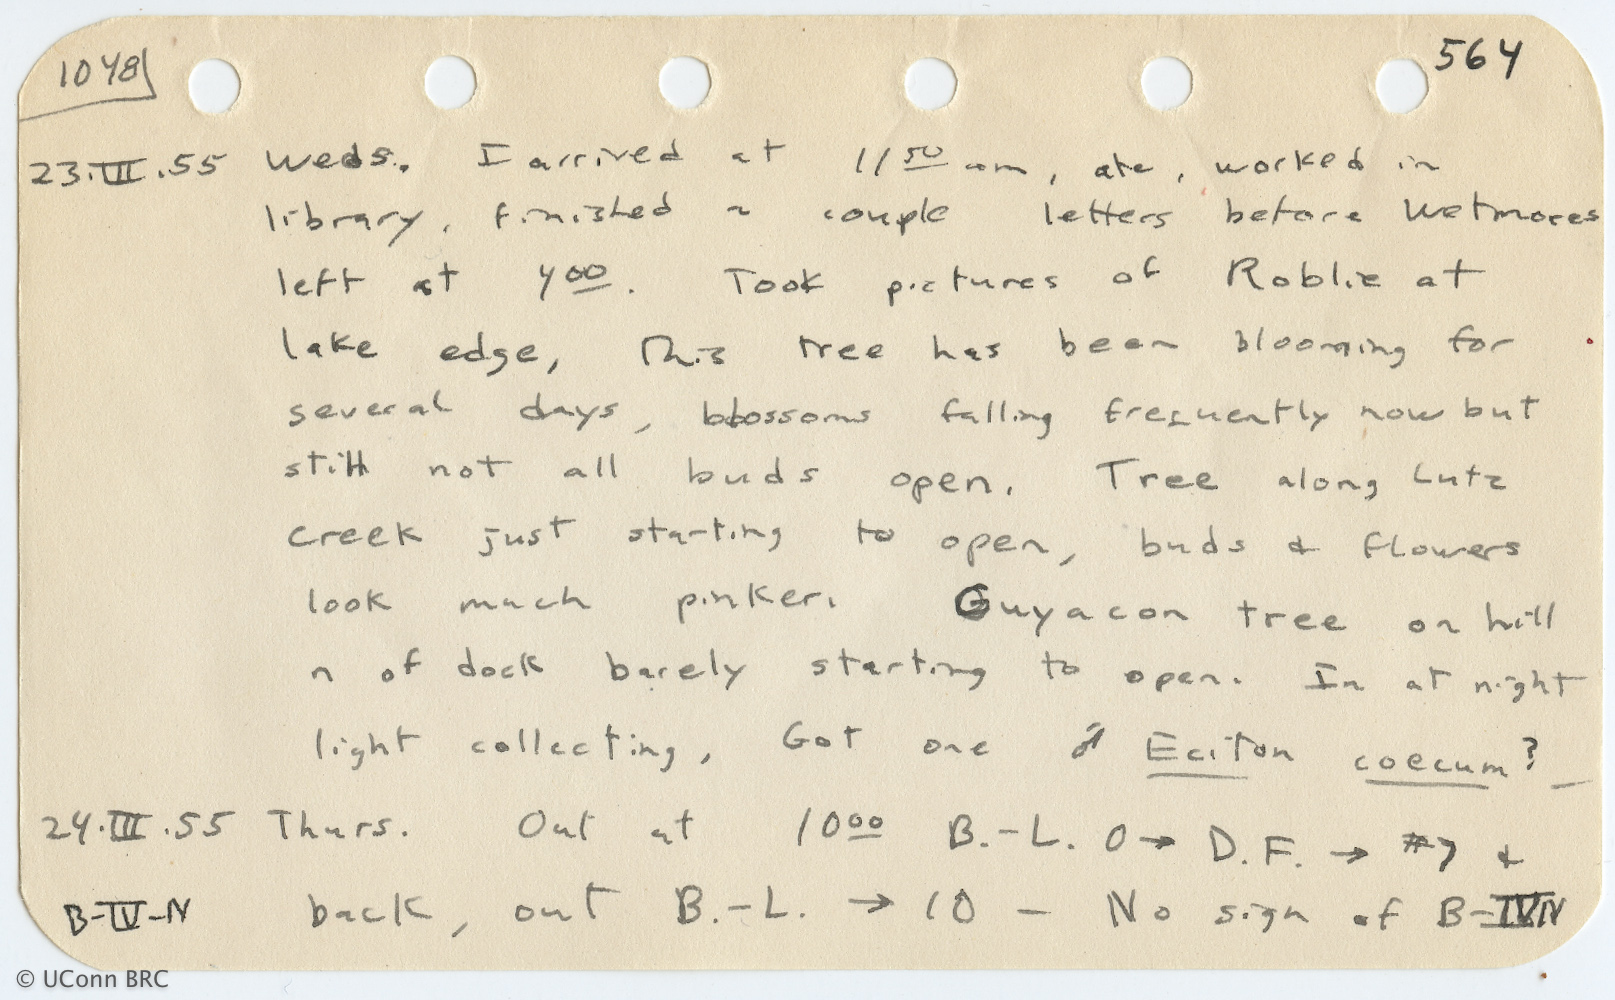 1048
564
23.III.55 Weds. I arrived at 11 50 am, ate, worked in
library, finished a couple letters before Wetmores
left at 4 00. Took pictures of Roble at
lake edge, This tree has been blooming for
several days, blossoms falling frequently now but
still not all buds open. Tree along Lutz
Creek just starting to open, buds & flowers
look much pinker. Guyacon tree on hill
n of dock barely starting to open. In at night
light collecting, Got one ♂ Eciton coecum?
24.III.55 Thurs. Out at 10 00 B.-L. 0 → D.F. → #7 &
B-IV-N back, out B.-L. → 10 – No sign of B-IVN
© UConn BRC